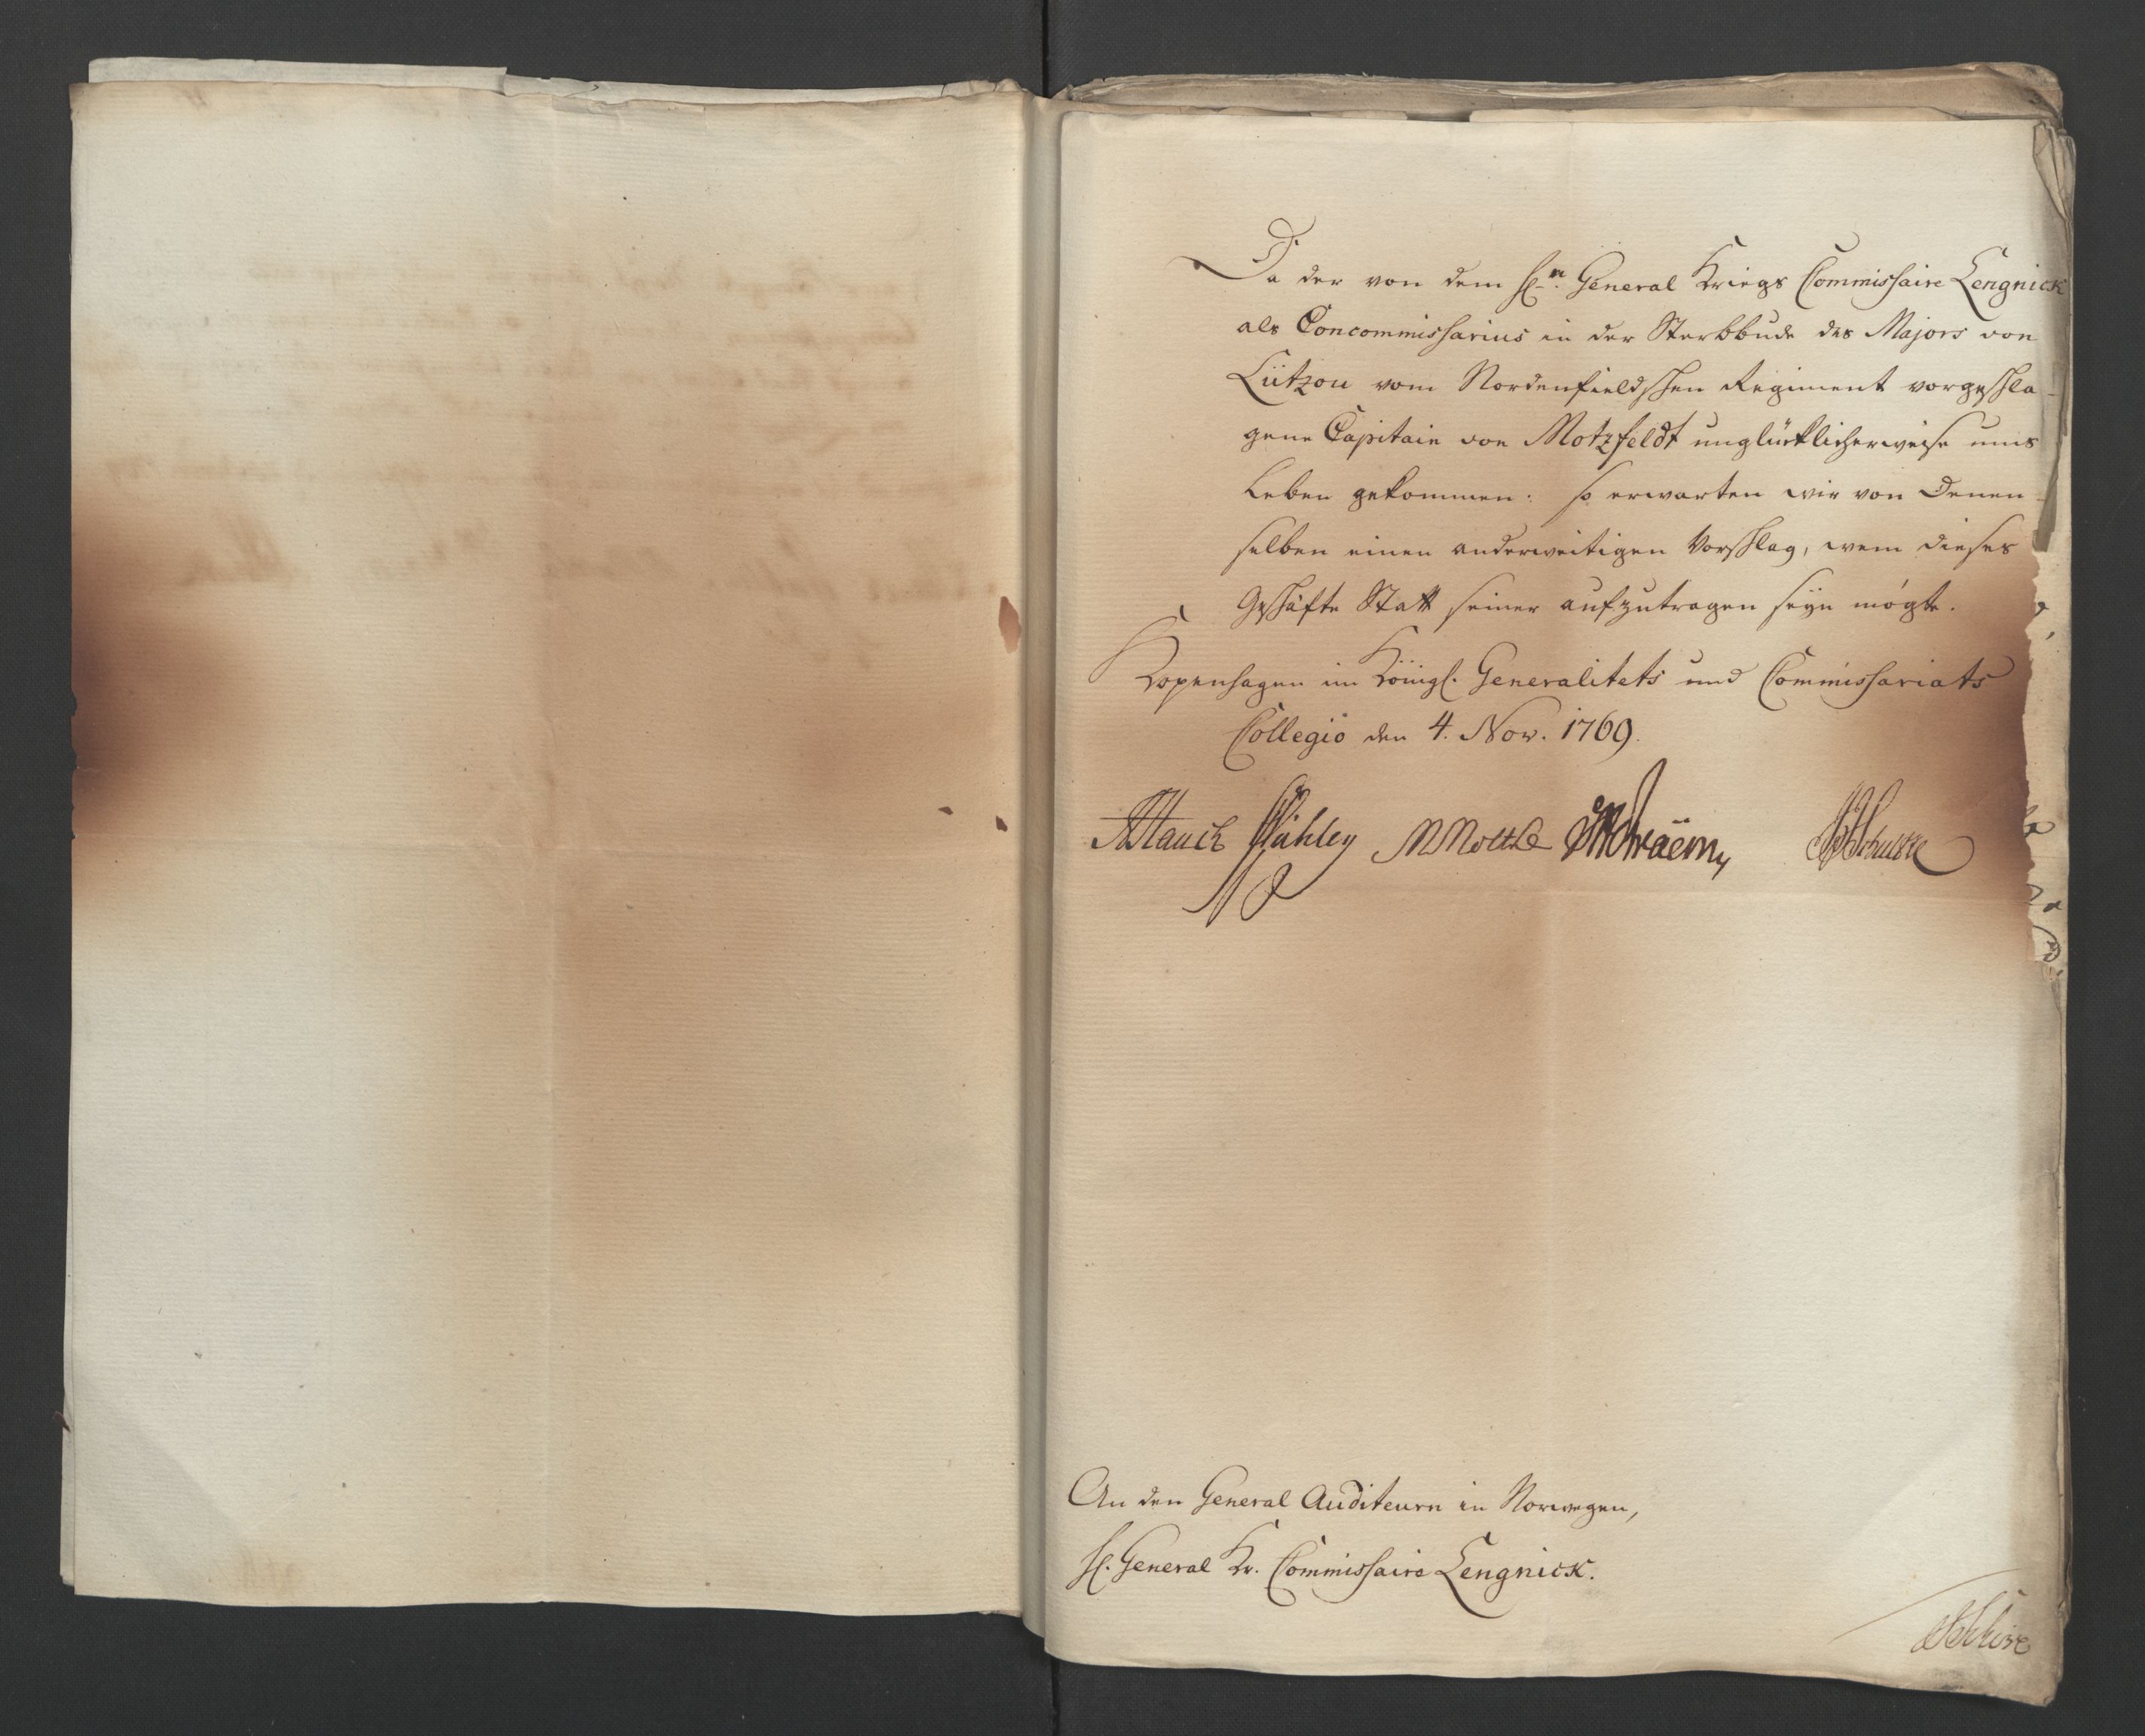 Da der von dem H.rn General Kriegs Commissaire Lengnick
als Concommissarius in der Sterbbude des Majors von
Lützou vom Nordenfieldschen Regiment vorgeschla-
gene Capitain von Motzfeldt unglücklicherweise ums
Leben gekommen: so erwarten wir von Denen-
selben einen anderweitigen Vorschlag, wem dieses
Geschäfte Statt seiner aufzutragen seyn mögte.
Kopenhagen im Königl. Generalitets und Commissariats
Collegio den 4. Nov. 1769.
Hauch Hühley Moltke Schultze
An den General Auditeurn in Norwegen,
H. General Kr. Commissaire Lengnick.